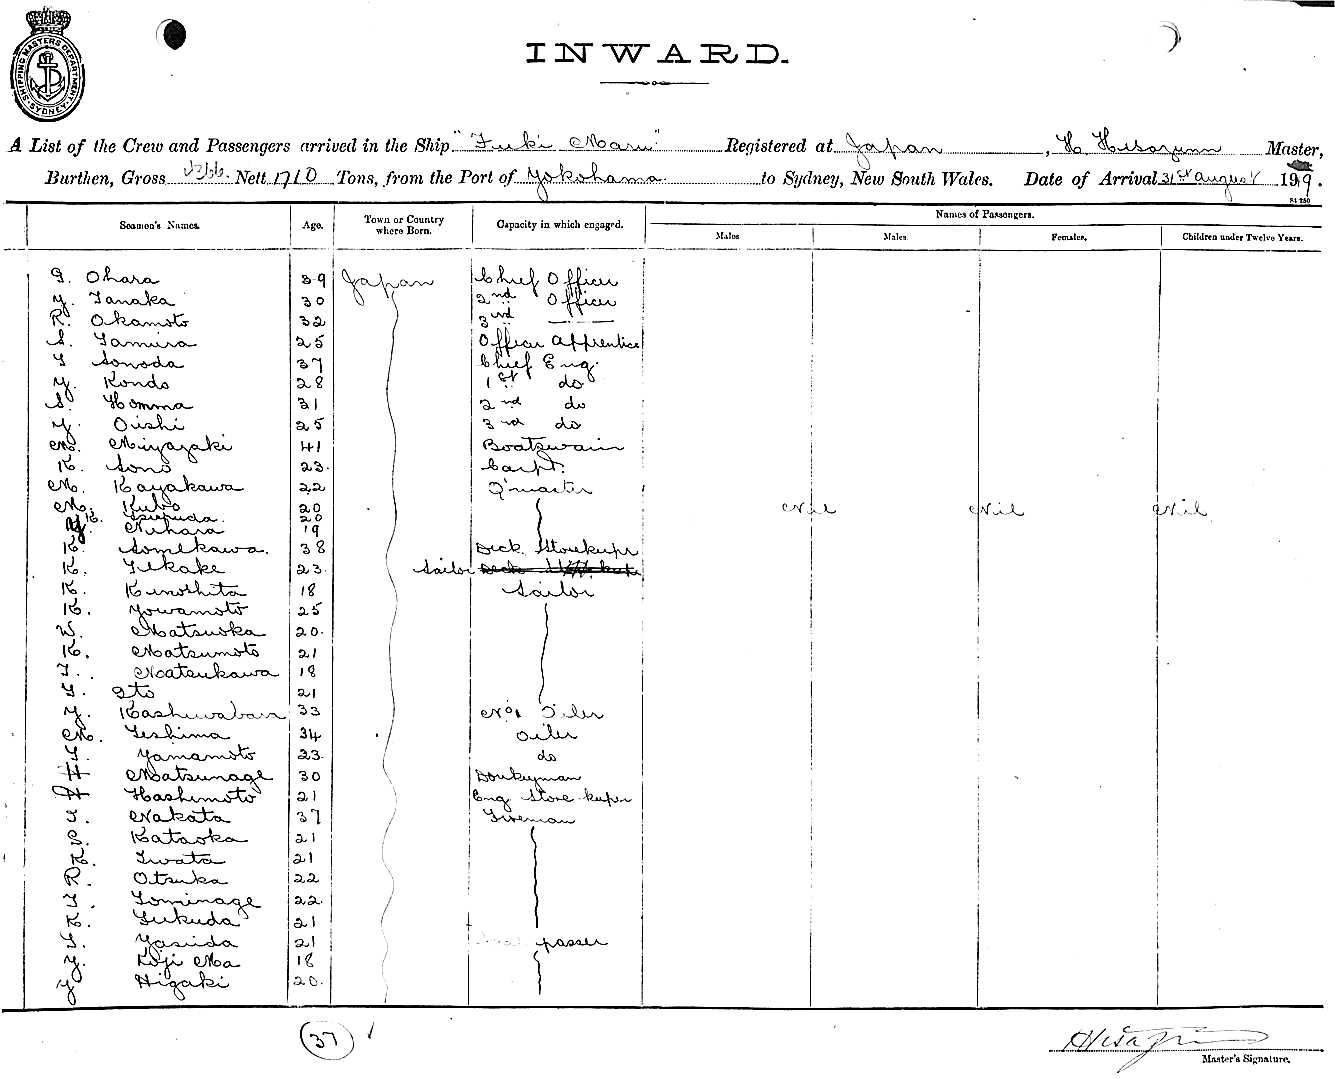 SHIPPING MASTERS DEPARTMENT SYDNEY
INWARD.
A List of the Crew and Passengers arrived in the Ship "Fuki Maru" Registered at Japan, H. Master,
Burthen, Gross Nett 1710 Tons, from the Port of Yokohama to Sydney, New South Wales. Date of Arrival 31st August 1919.
Seamen's Names. Age. Town or Country where Born. Capacity in which engaged. Names of Passengers.
Males Males. Females. Children under Twelve Years.
Ohara 39 Japan Chief Officer
Y. Tanaka 30 2nd Officer
R. Okamoto 32 3rd
S. Tamura 25 Officer Apprentice
Sonoda 37 Chief Eng.
Y. Kondo 28 1st do
S. Homma 31 2nd do
Y. Oishi 25 3rd do
M. Miyazaki 41 Boatswain
K. Sono 23. Carpt.
M. Kayakawa 22 Q'master
M. Kubo 20 Nil Nil Nil
K. 20
Nihara 19
K. Somekawa. 38 Deck Storekeeper
K. 23 Sailor
K. Kinoshita 18 Sailor
K. Yowamoto 25
W. Matsuoka 20.
K. Matsumoto 21
T. Matsukawa 18
Ito 21
Y. 33 No 1 Oiler
M. Teshima 34 Oiler
Yamamoto 23 do
H Matsunage 30 Donkeyman
H Hashimoto 21 Eng Store keeper
T. Nakata 37 Fireman
S. Kataoka 21
K. Iwata 21
R. Otsuka 22
T. Tominage 22.
K. Fukuda 21
Yasuda 21 passer
Y. Koji Ma 18
Y Higaki 20.
37
Master's Signature.